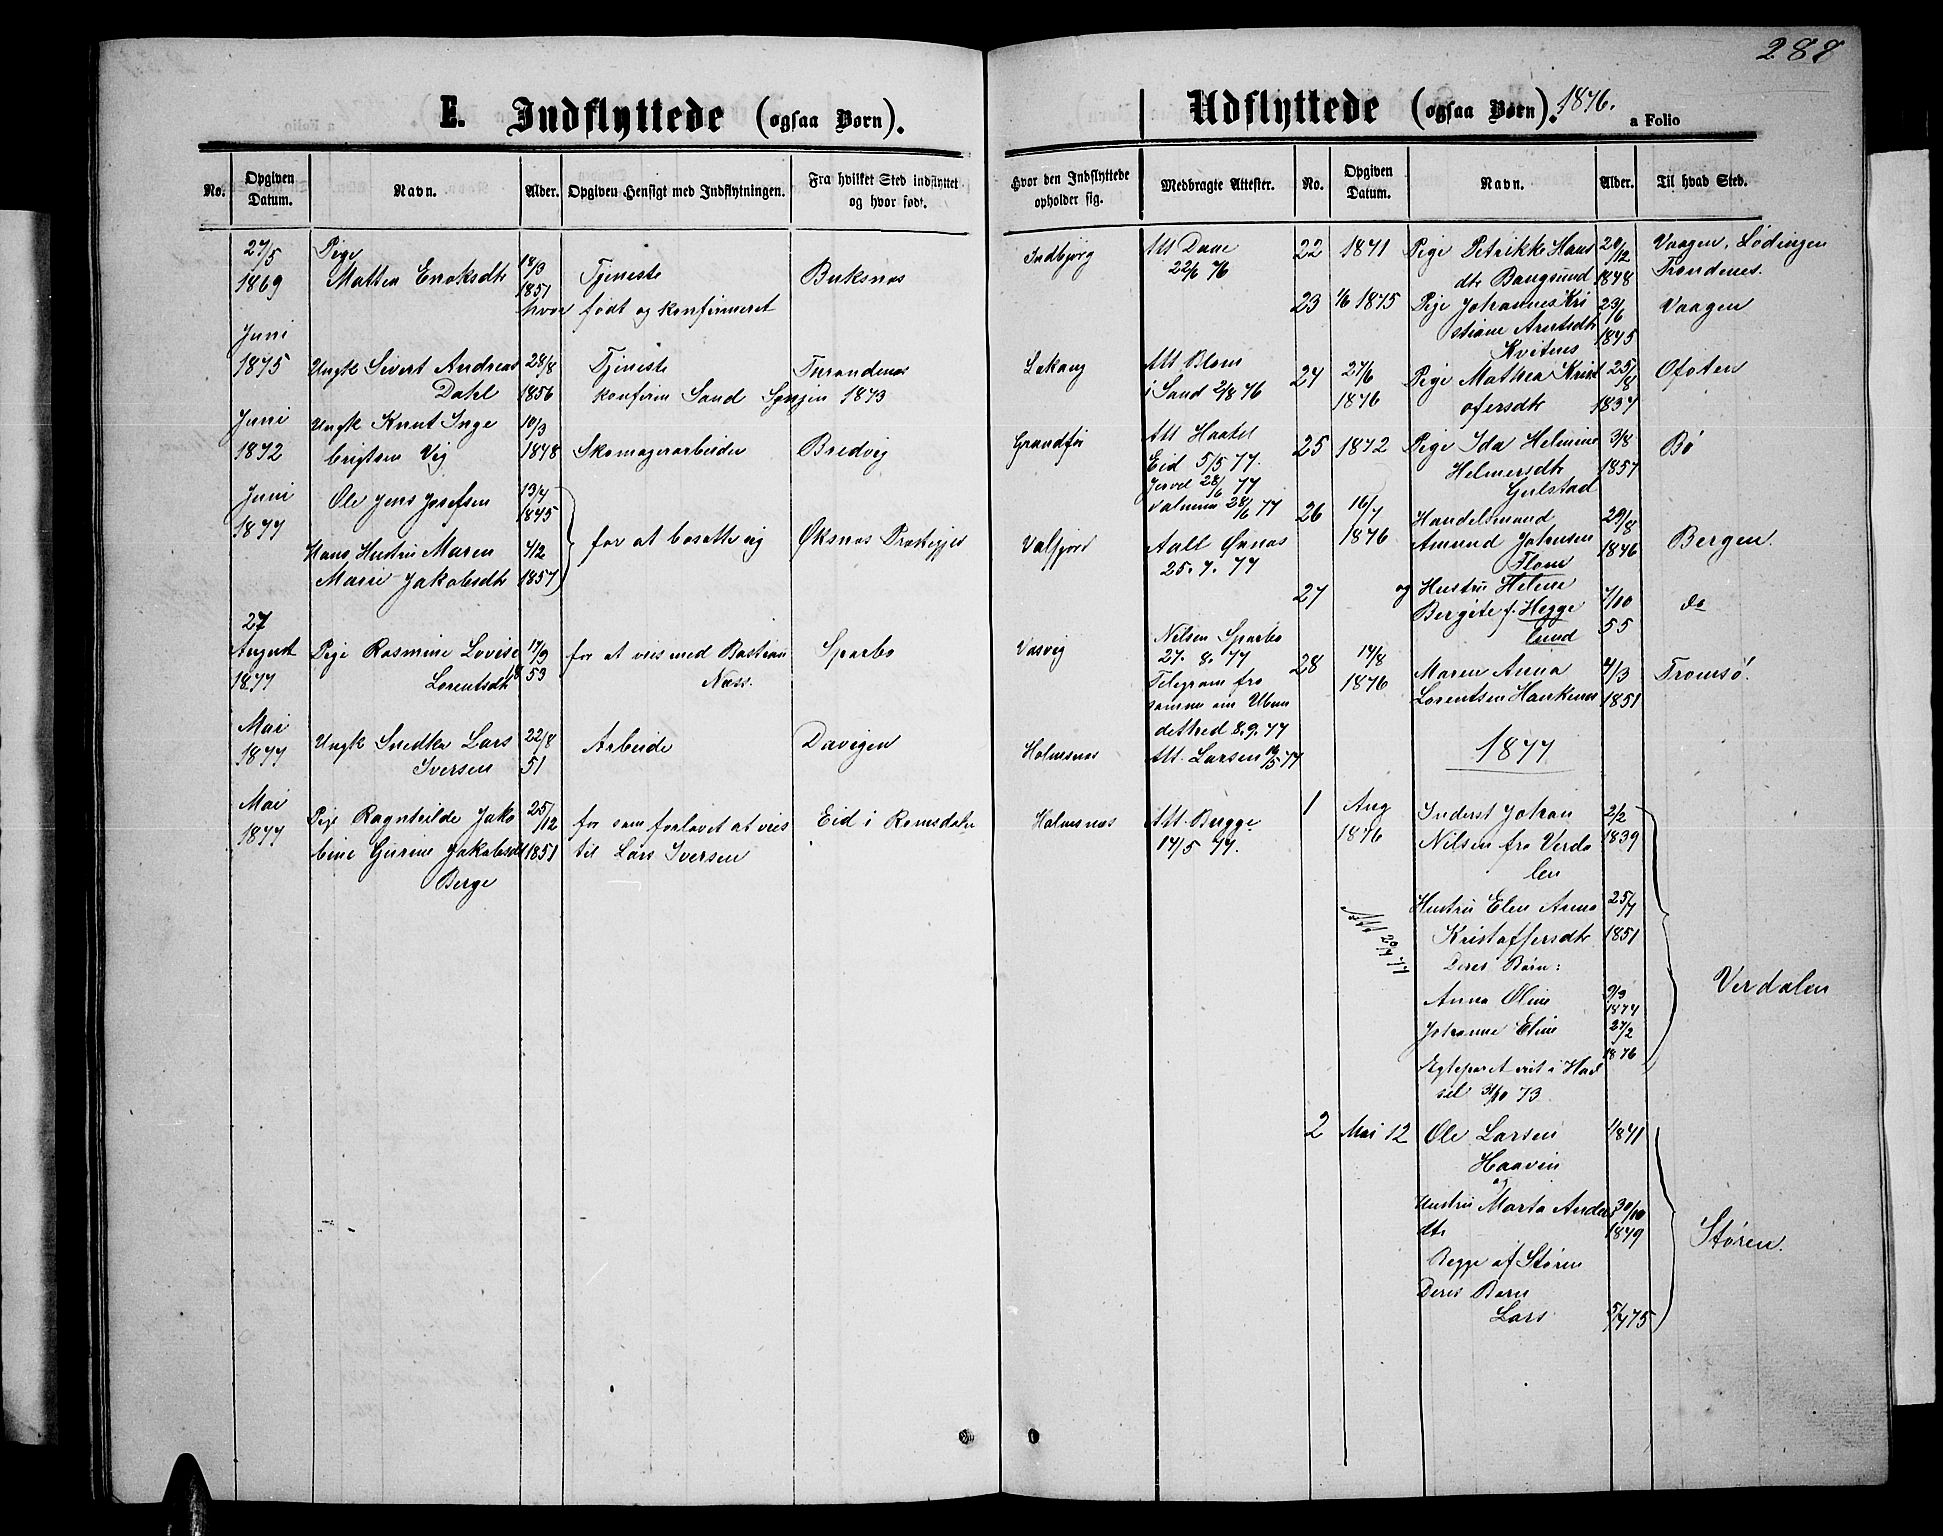 288
E. Indflyttede (ogsaa Børn).
No.
Opgiven
Datum.
Navn.
Alder.
Opgiven Hensigt med Indflytningen.
Fra hvilket Sted indflyttet
og hvor født.
Hvor den Indflyttede
opholder sig.
Medbragte Attester.
27/5
1869
Pige
Mathea Enoksdtr
18/3
1851
Tjeneste
Buksnæs
hvor født og konfirmeret
Indbjørg
Att Daae
22/6 76
Juni
1875
Ungk Sivert Andreas
Dahl
28/8
1856
Tjeneste
Trondenæs
konfirm Sand Senjen 1873
Lekang
Att Blom
i Sand 2/8 76
Juni
1872
Ungk Knut Inge
brigtsen Vig
10/3
1848
Skomagerarbeide
Bredvig
Grundfør
Att
Eid 5/5 77.
28/6 77
28/6 77
Juni
1877
Ole Jens Josefsen
13/7
1845
Hans Hustru Maren
Marie Jakobsdtr
4/2
1857
for at bosætte sig
Øksnæs
Valfjord
Øxnæs
25. 7. 77
27
August
1877
Pige Rasmine Lovise
Lorentsdtr
17/9
53
for at vies med Bastian
Næss
Sparbo
Vasvig
Nilsen Sparbo
27. 8. 77
Telegram fra
samme om Uben
dethed 8.9.77
Mai
1877
Ungk Snedker Lars
Iversen
22/8
51
Arbeide
Davigen
Holmsnæs
Att. Larsen /5 77
Mai
1877
Pige Ragnhilde Jako
bine Gurine Jakobsdtr
Berge
25/12
1851
for som forlovet at vies
til Lars Iversen
Eid i Romsdalen
Holmsnæs
Att. Bergge
14/5 77.
Udflyttede (ogsaa Børn). 1876.
a Folio
No.
Opgiven
Datum.
Navn.
Alder.
Til hvad Sted.
22
1871
Pige Petrikke Hans
dtr Bangsund
20/12
1848
Vaagen, Lødingen
Trondenes.
23
1/6 1875
Pige Johannes Kri
stiane Arntsdtr
Kvitnes
23/6
1845
Vaagen
24
27/6
1876
Pige Mathea Krist
ofersdtr
25/8
1837
Ofoten
25
1872
Pige Ida Helmine
Helmersdtr
Gulstad
3/8
1857
Bø
26
16/7
1876
Handelsmand
Amund Johansen
Flom
29/8
1846
Bergen
27
og Hustru Helene
Bergite f. Hegge
lund
7/10
55
do
28
14/8
1876
Maren Anna
Lorentsen Haukenæs
4/3
1851
Tromsø.
1877
1
Aug
1876
Att 20/4 77
Inderst Johan
Nilsen fra Verda
len
2/2
1839
Hustru Elen Anna
Kristoffersdtr
25/7
1851
Deres Børn:
Anna Oline
9/9
1874
Johanne Eline
27/2
1876
Ægteparet viet i Had
sel 31/10 73
Verdalen
2
Mai 12
Ole Larsen
Haaven
1841
og
Hustru Marta Anders
dtr
30/10
1849
Begge af Støren
Deres Barn
Lars
5/7 75
Støren.